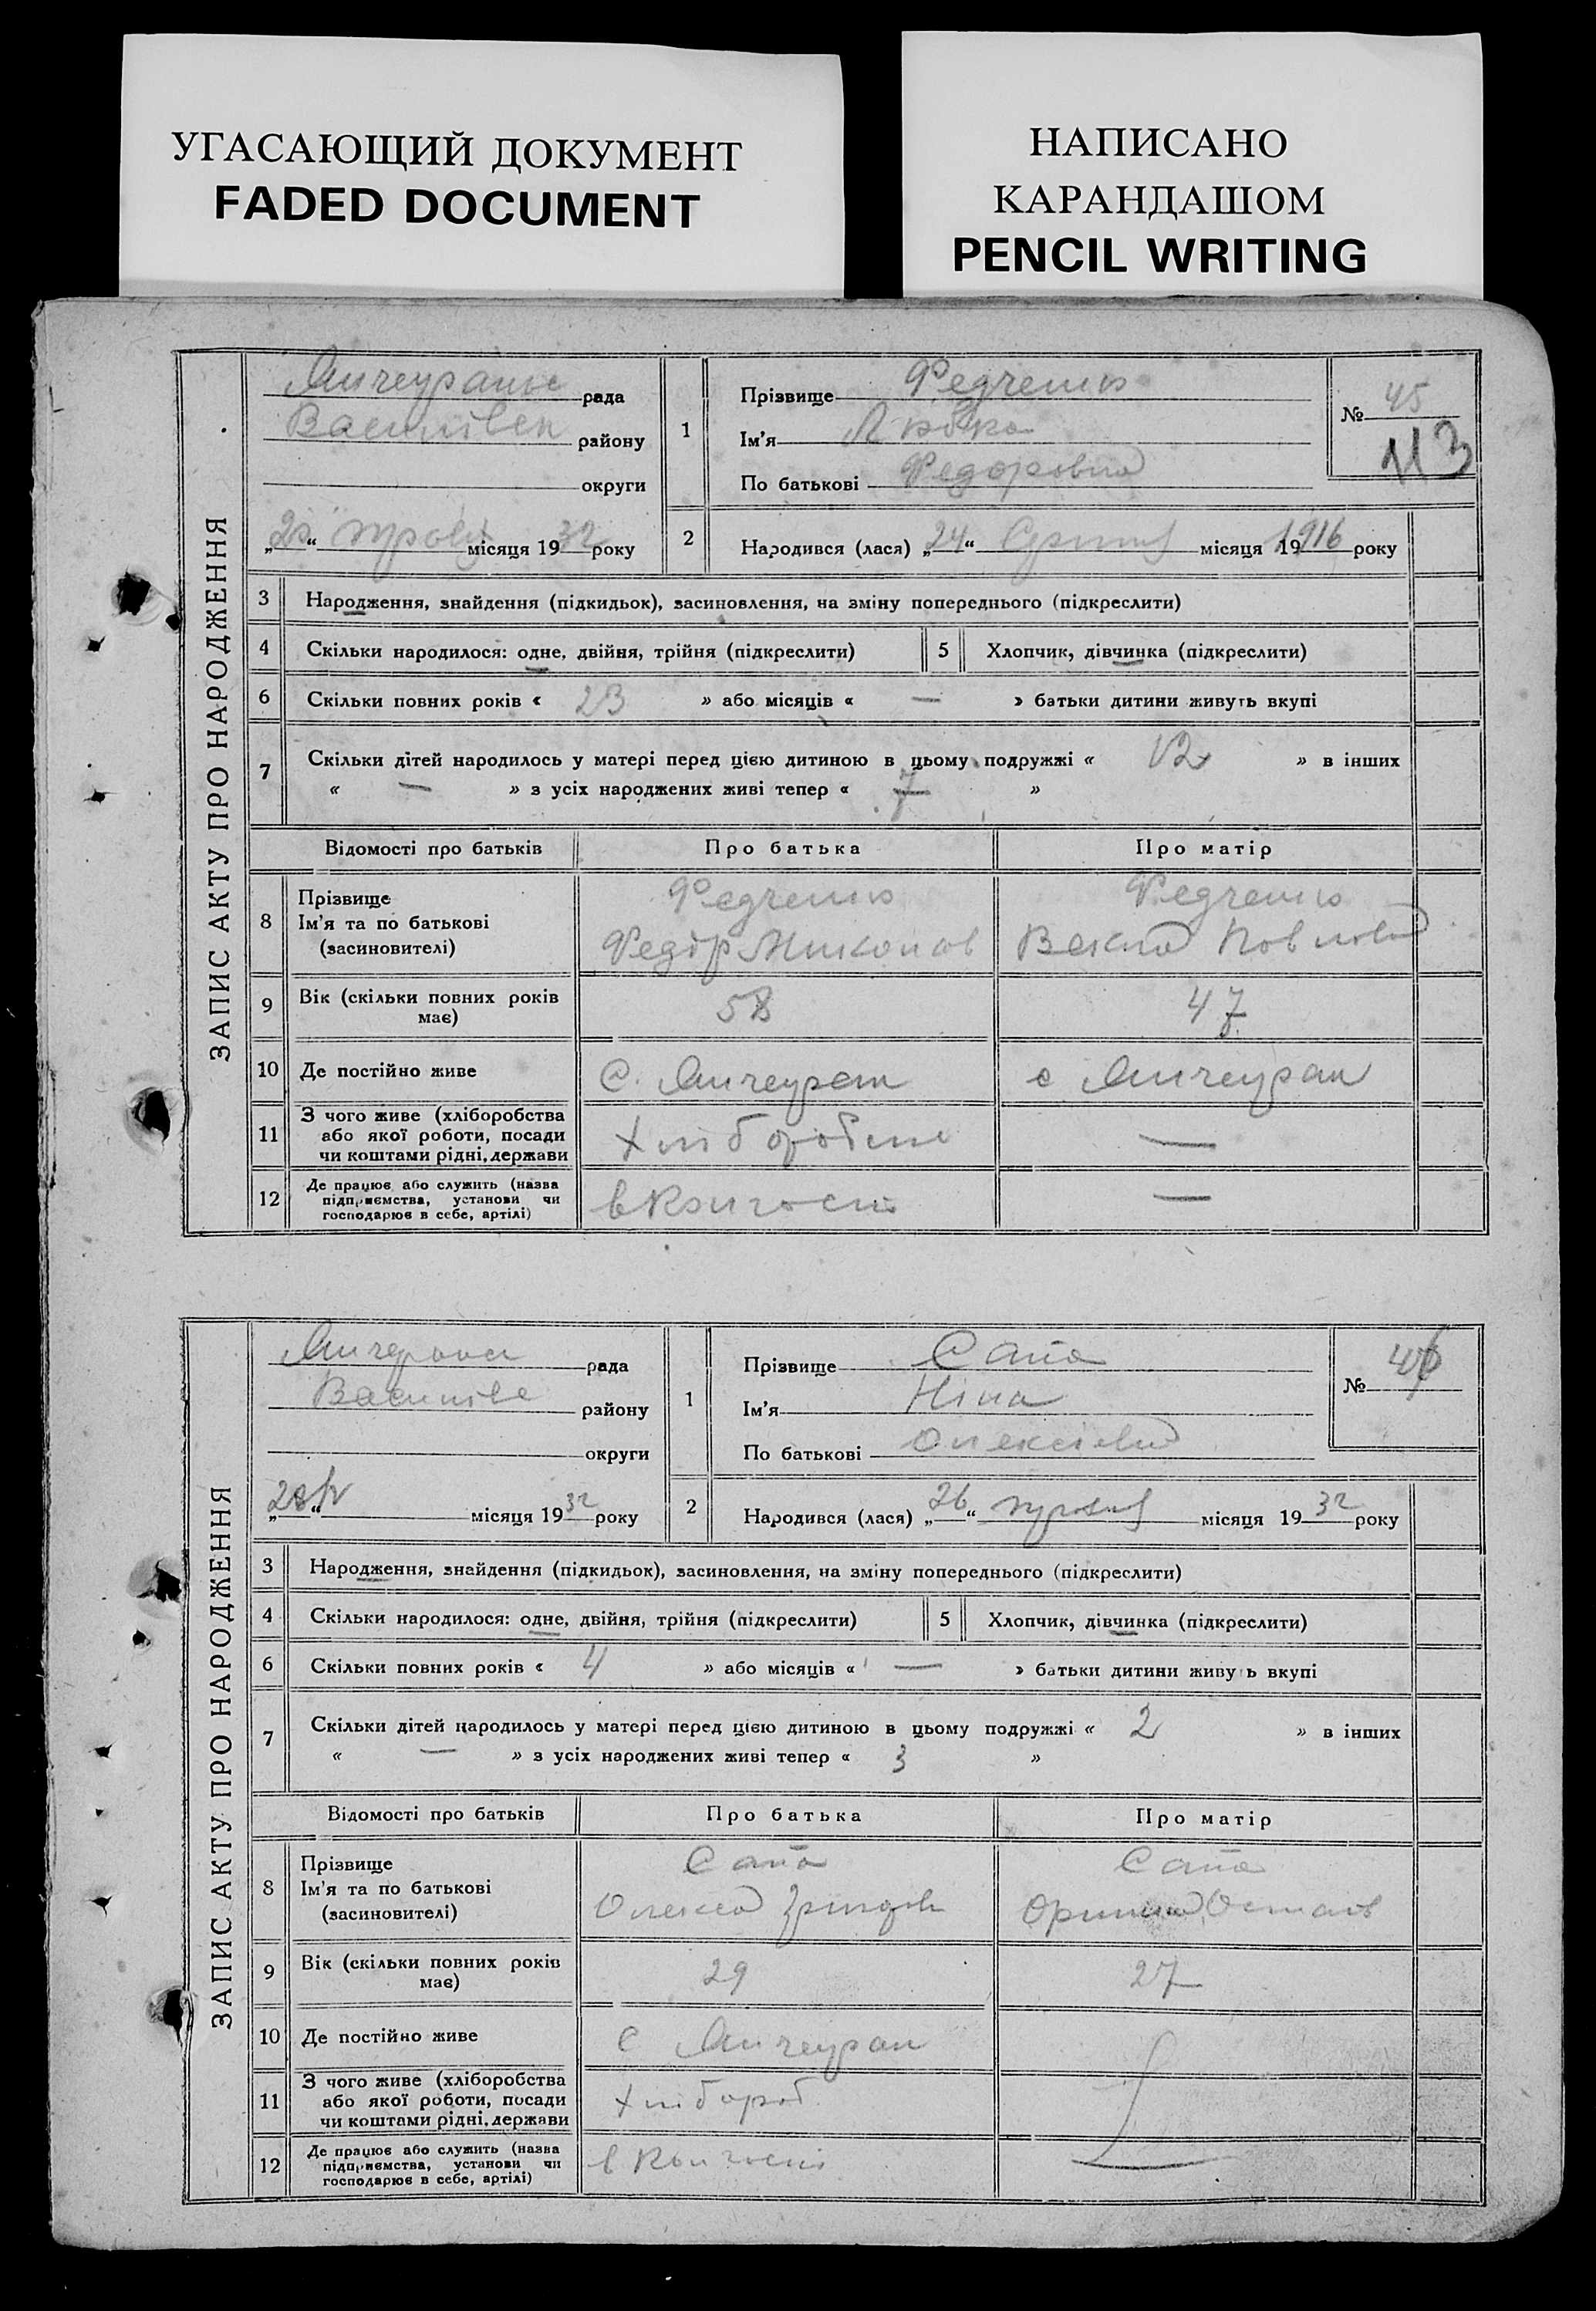 УГАСАЮЩИЙ ДОКУМЕНТ
FADED DOCUMENT
НАПИСАНО
КАРАНДАШОМ
PENCIL WRITING
ЗАПИС АКТУ ПРО НАРОДЖЕННЯ
рада
району
округи
місяця 1932 року
1
Прізвище Федченко
Ім’я
По батькові
№ 45
113
2
Народився (лася) „24“ Серпня місяця 1916 року
3 Народження, знайдення (підкидьок), засиновлення, на зміну попереднього (підкреслити)
4 Скільки народилося: одне, двійня, трійня (підкреслити)
5 Хлопчик, дівчинка (підкреслити)
6 Скільки повних років « 23 » або місяців « — » батьки дитини живуть вкупі
7 Скільки дітей народилось у матері перед цією дитиною в цьому подружжі « 12 » в інших
« — » з усіх народжених живі тепер « 7 »
Відомості про батьків Про батька Про матір
8 Прізвище Федченко Федченко
Ім’я та по батькові
(засиновителі)
Федір Миколов
9 Вік (скільки повних років
має)
58 47
10 Де постійно живе с. с
11 З чого живе (хліборобства
або якої роботи, посади
чи коштами рідні, держави
—
12 Де працює або служить (назва
підприємства, установи чи
господарює в себе, артілі)
в колгоспі —
ЗАПИС АКТУ ПРО НАРОДЖЕННЯ
рада
району
округи
місяця 1932 року
1
Прізвище Сапа
Ім’я Ніна
По батькові
№ 46
2
Народився (лася) „26“ місяця 1932 року
3 Народження, знайдення (підкидьок), засиновлення, на зміну попереднього (підкреслити)
4 Скільки народилося: одне, двійня, трійня (підкреслити)
5 Хлопчик, дівчинка (підкреслити)
6 Скільки повних років « 4 » або місяців « — » батьки дитини живуть вкупі
7 Скільки дітей народилось у матері перед цією дитиною в цьому подружжі « 2 » в інших
« — » з усіх народжених живі тепер « 3 »
Відомості про батьків Про батька Про матір
8 Прізвище Сапа Сапа
Ім’я та по батькові
(засиновителі)
Олекса
9 Вік (скільки повних років
має)
29 27
10 Де постійно живе с
11 З чого живе (хліборобства
або якої роботи, посади
чи коштами рідні, держави
хлібороб
12 Де працює або служить (назва
підприємства, установи чи
господарює в себе, артілі)
в колгоспі